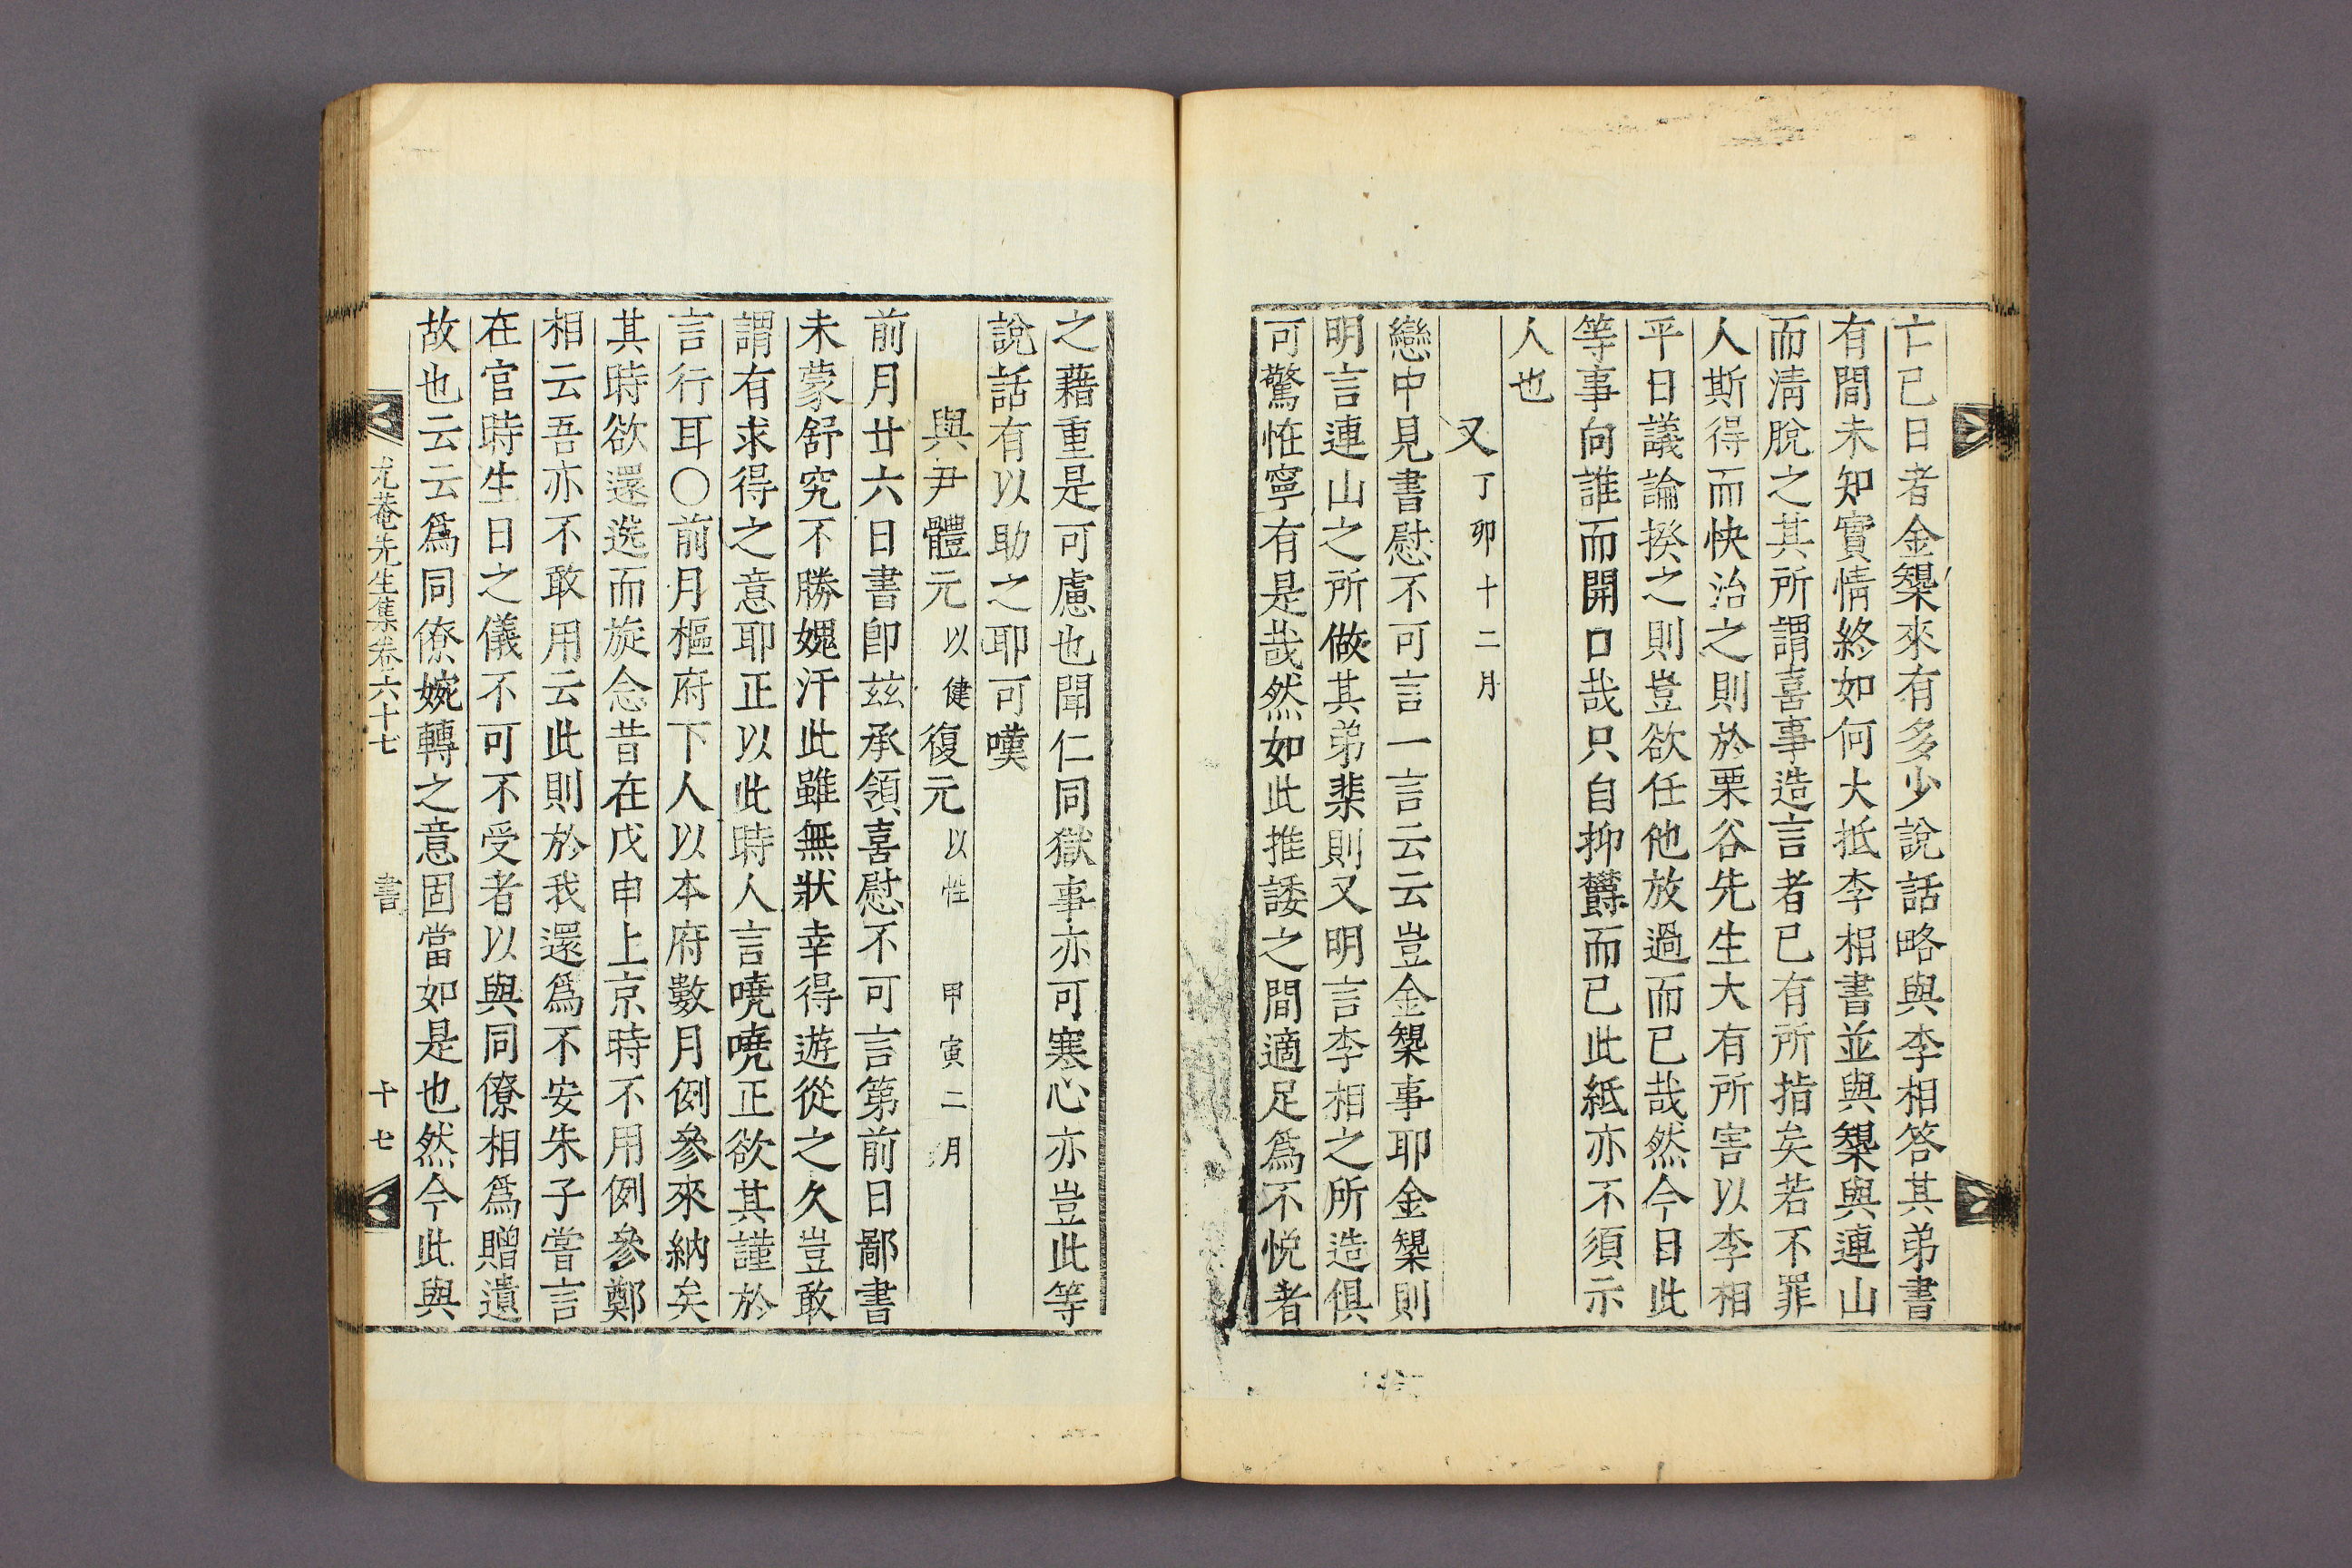 亡已日者金榘來有多少說話略與李相答其弟書
有間未知實情終如何大抵李相書並與榘與連山
而淸脫之其所謂喜事造言者已有所指矣若不罪
人斯得而快治之則於栗谷先生大有所害以李相
平日議論揆之則豈欲任他放過而已哉然今日此
等事向誰而開口哉只自抑欝而已此紙亦不須示
人也
又丁卯十二月
戀中見書慰不可言一言云云豈金榘事耶金榘則
明言連山之所做其弟棐則又明言李相之所造俱
可驚恠寧有是哉然如此推諉之間適足爲不悅者
之藉重是可慮也聞仁同獄事亦可寒心亦豈此等
說話有以助之耶可嘆
與尹體元以健復元以性 甲寅二月
前月廿六日書卽玆承領喜慰不可言第前日鄙書
未蒙舒究不勝媿汗此雖無狀幸得遊從之久豈敢
謂有求得之意耶正以此時人言嘵嘵正欲其謹於
言行耳○前月樞府下人以本府數月例參來納矣
其時欲還送而旋念昔在戊申上京時不用例參鄭
相云吾亦不敢用云此則於我還爲不安朱子嘗言
在官時生日之儀不可不受者以與同僚相爲贈遺
故也云云爲同僚婉轉之意固當如是也然今此與
尤菴先生集卷六十七 書 十七